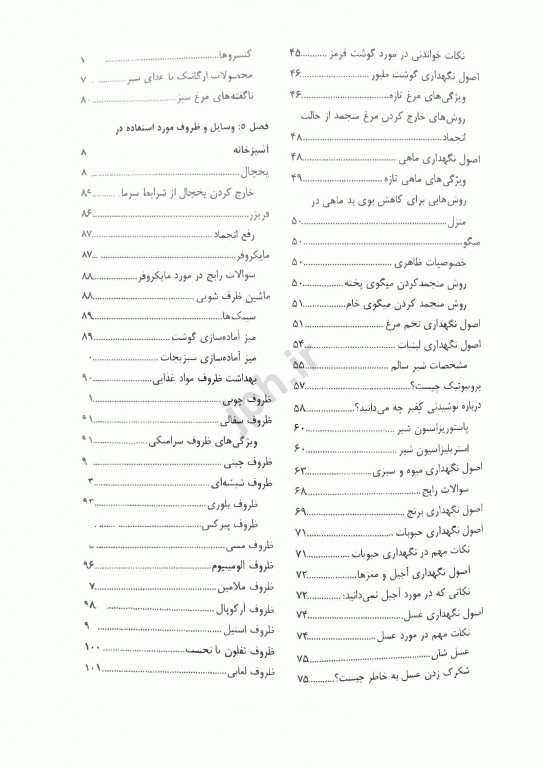 نکات خواندنی در مورد گوشت قرمز ...........۴۵
اصول نگهداری گوشت طیور...........................۴۶
ویژگی‌های مرغ تازه....................................۴۶
روش‌های خارج کردن مرغ منجمد از حالت
انجماد.........................................................۴۸
اصول نگهداری ماهی ..................................۴۸
ویژگی‌های ماهی تازه .................................۴۹
روش‌هایی برای کاهش بوی بد ماهی در
منزل...........................................................۵۰
میگو............................................................۵۰
خصوصیات ظاهری ....................................۵۰
روش منجمدکردن میگوی پخته................۵۰
روش منجمد کردن میگوی خام................۵۱
اصول نگهداری تخم مرغ ............................۵۱
اصول نگهداری لبنیات ................................۵۴
مشخصات شیر سالم .................................۵۵
پروبیوتیک چیست؟....................................۵۷
درباره نوشیدنی کفیر چه می‌دانید؟..................۵۸
پاستوریزاسیون شیر ..................................۶۰
استریلیزاسیون شیر ..................................۶۰
اصول نگهداری میوه و سبزی........................۶۳
سوالات رایج .............................................۶۸
اصول نگهداری برنج ...................................۶۹
اصول نگهداری حبوبات ...............................۷۱
نکات مهم در نگهداری حبوبات ................۷۱
اصول نگهداری آجیل و مغزها...................۷۲
نکاتی که در مورد آجیل نمی‌دانید: .............۷۲
اصول نگهداری عسل ..................................۷۴
نکات مهم در مورد عسل...........................۷۴
عسل شان................................................۷۵
شکرک زدن عسل به خاطر چیست؟..........۷۵
کنسروها...............................................
محصولات ارگانیک یا غذای سبز............
ناگفته‌های مرغ سبز...............................۸۰
فصل ۵: وسایل و ظروف مورد استفاده در
آشپزخانه
یخچال....................................................
خارج کردن یخچال از شرایط سرما. .........
فریزر......................................................۸۶
رفع انجماد ..............................................۸۷
مایکروفر..................................................۸۷
سوالات رایج در مورد مایکروفر..................۸۸
ماشین ظرف شویی ..................................۸۸
سینک‌ها...................................................۸۹
میز آماده‌سازی گوشت ..............................۸۹
میز آماده‌سازی سبزیجات .........................
بهداشت ظروف مواد غذایی......................۹۰
ظروف چوبی ...........................................
ظروف سفالی ..........................................۹۱
ویژگی‌های ظروف سرامیکی .....................۹۱
ظروف چینی ...........................................
ظروف شیشه‌ای ......................................
ظروف بلوری ...........................................۹۳
ظروف پیرکس.........................................
ظروف مسی............................................
ظروف آلومینیوم......................................۹۶
ظروف ملامین.........................................
ظروف آرکوپال ........................................۹۸
ظروف استیل ..........................................
ظروف تفلون یا نچسب............................۱۰۰
ظروف لعابی............................................۱۰۱
jph.ir